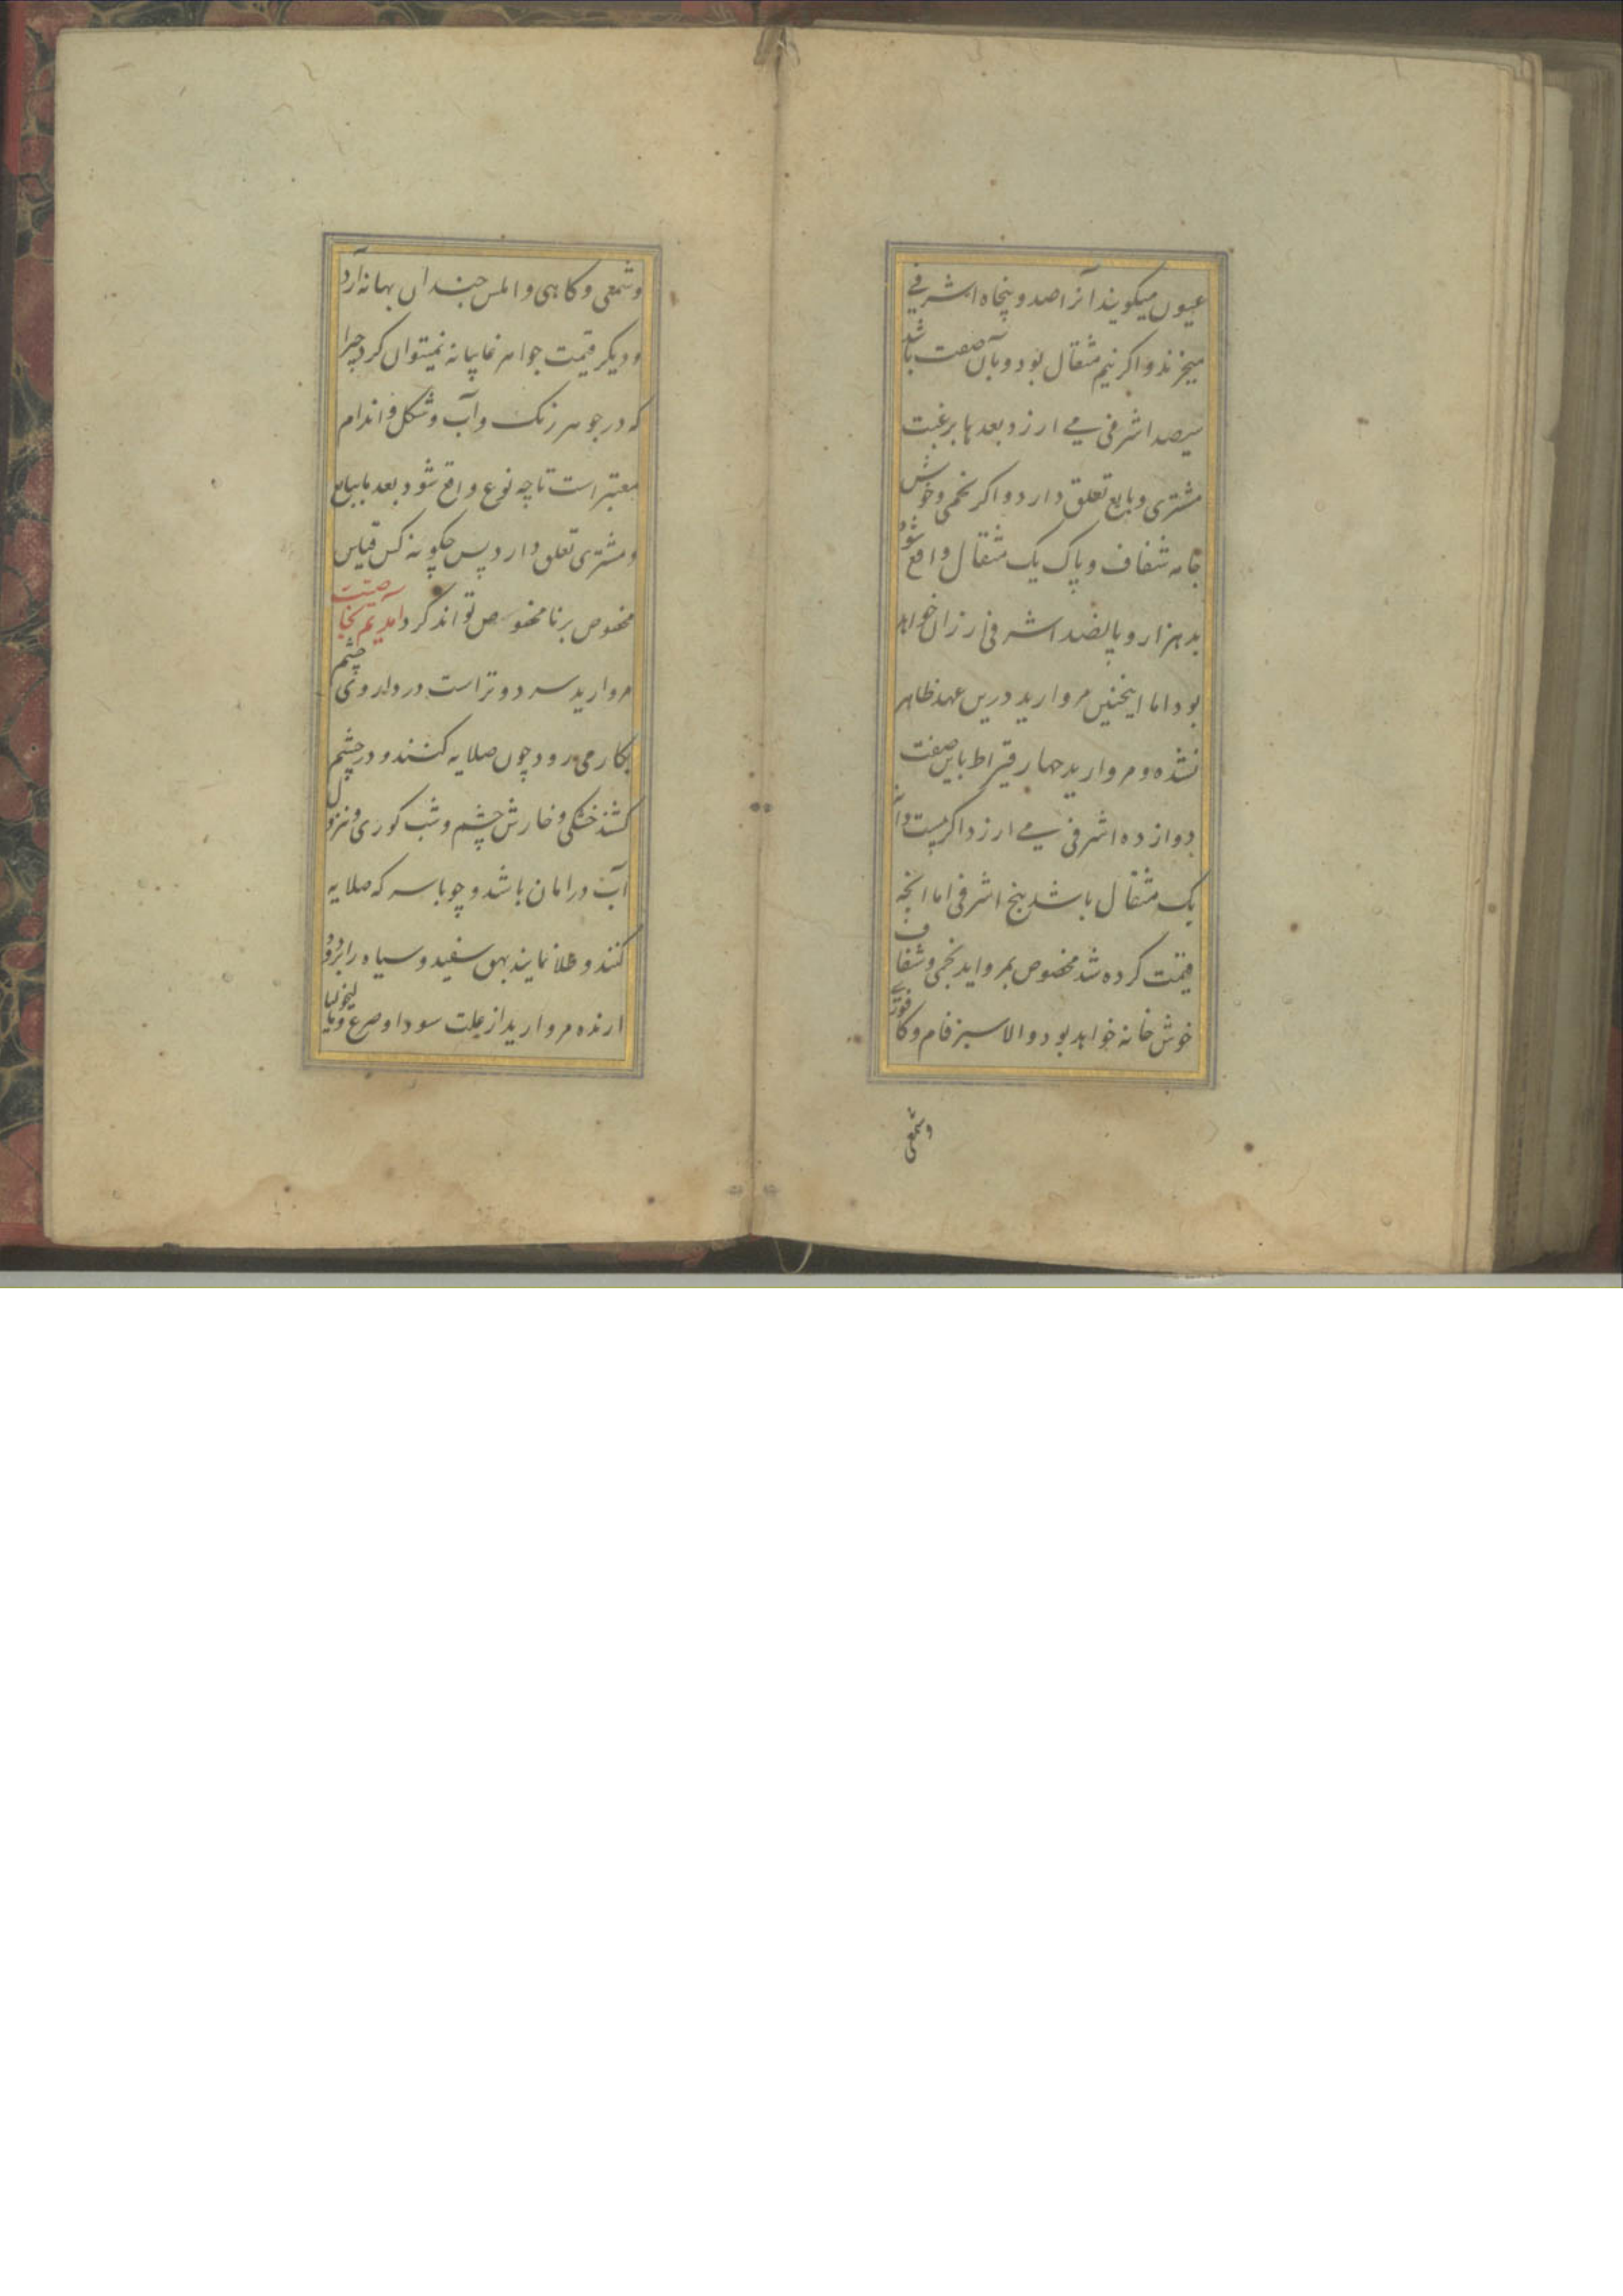 عیون میکویند آنرا صد و پنجاه اشرفے
میخرند و اکر نیم مثقال بود و بآن صفت باشد
سیصد اشرفی مے ارزد بعدها برغبت
مشتری و بایع تعلق دارد و اکر نجمی و خوش
خانه شفاف و پاک یک مثقال واقع شود
بد هزار و پانصد اشرفی ارزان خواهد
بود اما اینچنین مروارید درین عهد ظاهر
نشده و مروارید چهار قیراط باین صفت
دوازده اشرفی مے ارزد اکر بیست دانه
یک مثقال باشد پنج اشرفی اما انچه
قیمت کرده شد مخصوص بمروارید نجمی و شفاف
خوش خانه خواهد بود و الا سبز فام و کافورے
وشمعی
وشمعی و کاهی و املس چندان بها ندارد
و دیکر قیمت جواهر غایبانه نمیتوان کرد چرا
که در جوهر رنک و آب و شکل و اندام
معتبر است تا چه نوع واقع شود بعد ببایع
و مشتری تعلق دارد پس چکونه کس قیاس
مخصوص بر نامخصوص تواند کرد آمدیم بخاصیت
مروارید سرد و تر است در داروی چشم
بکار می رود چون صلایه کنند و در چشم
کشند خشکی و خارش چشم و شب کوری و نزول
آب در امان باشد و چو با سرکه صلایه
کنند و طلا نمایند بهق سفید و سیاه را ببرد و
دارنده مروارید از علت سودا و صرع و مالیخولیا